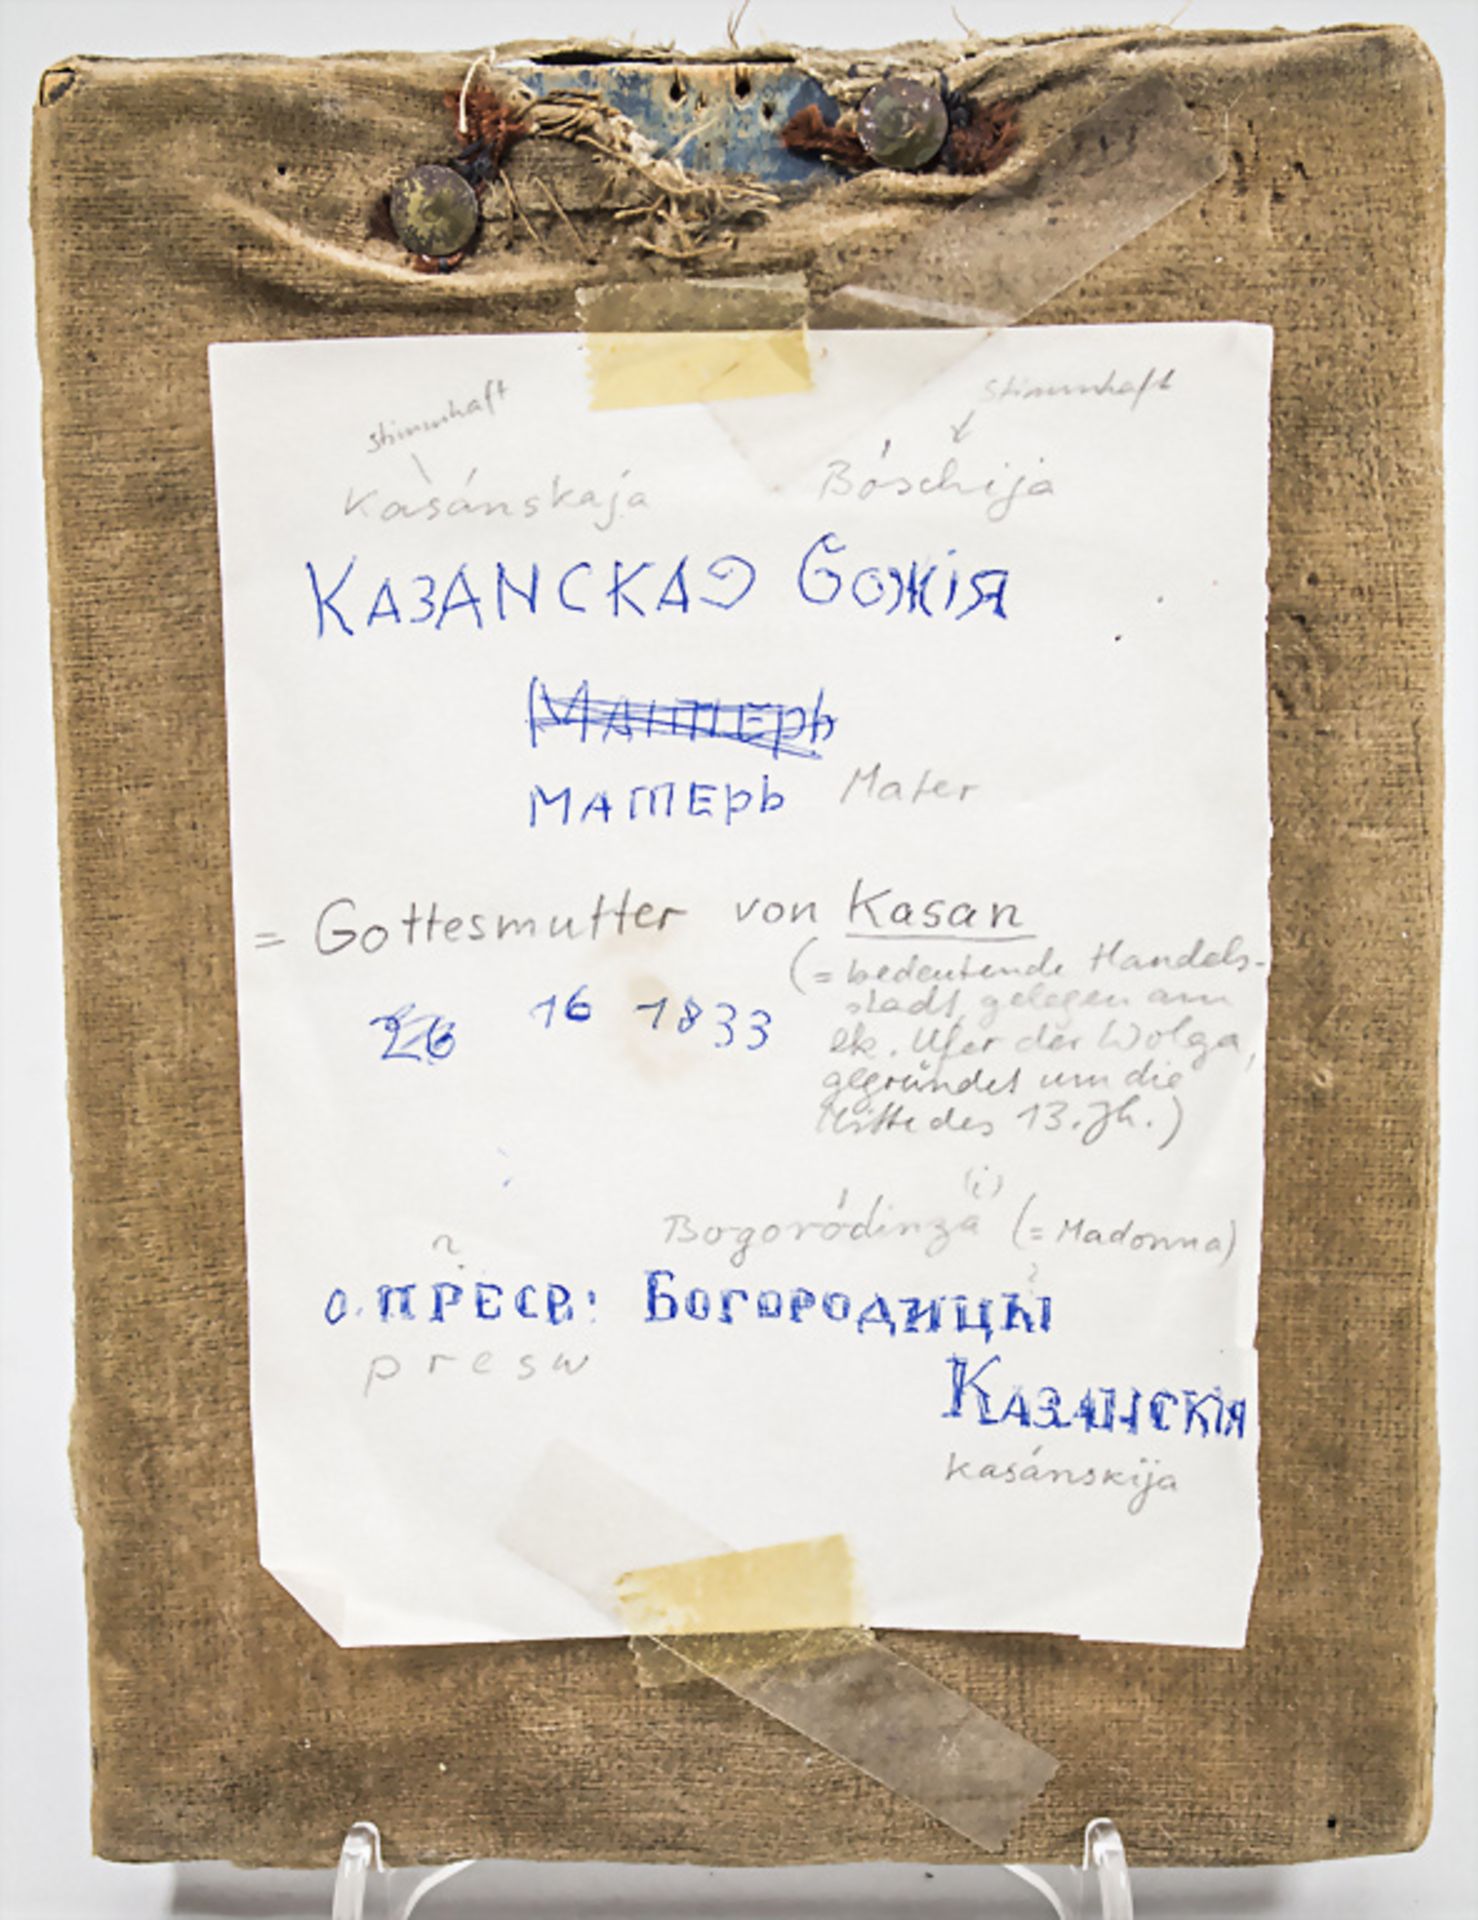 stimmhaft stimmhaft
Kasánskaja Bóschija
КАЗАНСКАЭ БОЖІЯ
МАТТЕРЬ
МАТЕРЬ Mater
= Gottesmutter von Kasan
(= bedeutende Handels-
26 16 1833 stadt, gelegen am
lk. Ufer der Wolga,
gegründet um die
Mitte des 13. Jh.)
(i)
? Bogoródinza (= Madonna)
?
О. ПРЕСВ: БОГОРОДИЦЫ
presw
КАЗАНСКІЯ
kasánskija